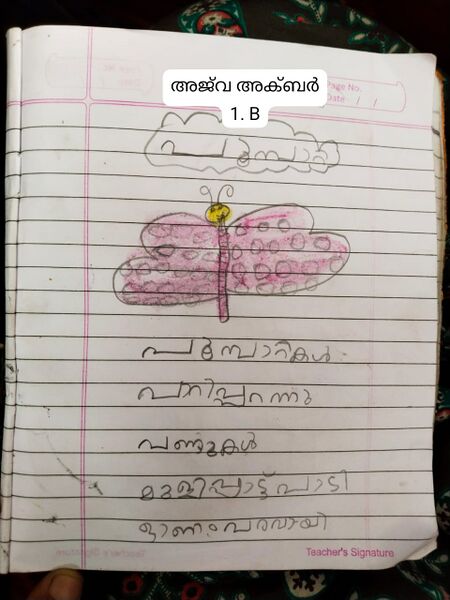 അജ്‌വ അക്ബർ
1. B
Page No.
Date / /
പൂമ്പാറ്റ
പൂമ്പാറ്റകൾ
പാറിപ്പറന്നു
വണ്ടുകൾ
മൂളിപ്പാട്ട് പാടി
ഓണം വരവായി
Teacher's Signature